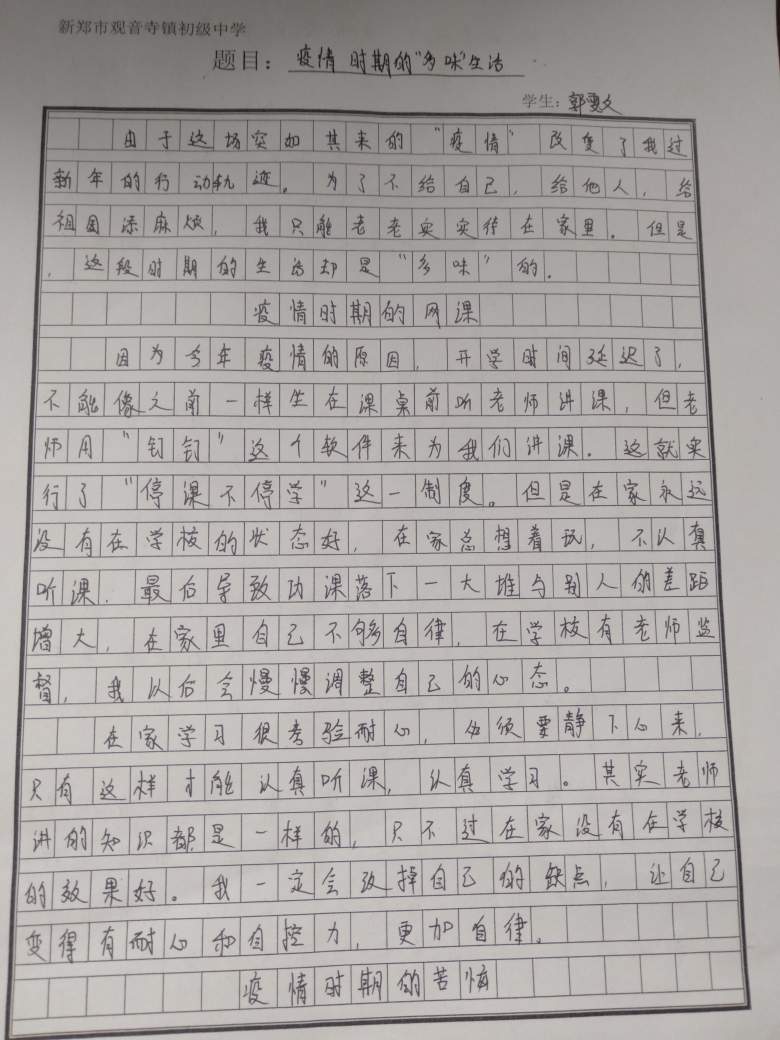 新郑市观音寺镇初级中学
题目：疫情时期的“多味”生活
学生：郭雯文
由于这场突如其来的“疫情”改变了我过
新年的行动轨迹。为了不给自己，给他人，给
祖国添麻烦，我只能老老实实待在家里。但是
，这段时期的生活却是“多味”的。
疫情时期的网课
因为今年疫情的原因，开学时间延迟了，
不能像之前一样坐在课桌前听老师讲课，但老
师用“钉钉”这个软件来为我们讲课。这就实
行了“停课不停学”这一制度。但是在家永远
没有在学校的状态好，在家总想着玩，不认真
听课．最后导致功课落下一大堆与别人的差距
增大，在家里自己不够自律，在学校有老师监
督，我以后会慢慢调整自己的心态。
在家学习很考验耐心，必须要静下心来，
只有这样才能认真听课，认真学习。其实老师
讲的知识都是一样的，只不过在家没有在学校
的效果好。我一定会改掉自己的缺点，让自己
变得有耐心和自控力，更加自律。
疫情时期的苦恼